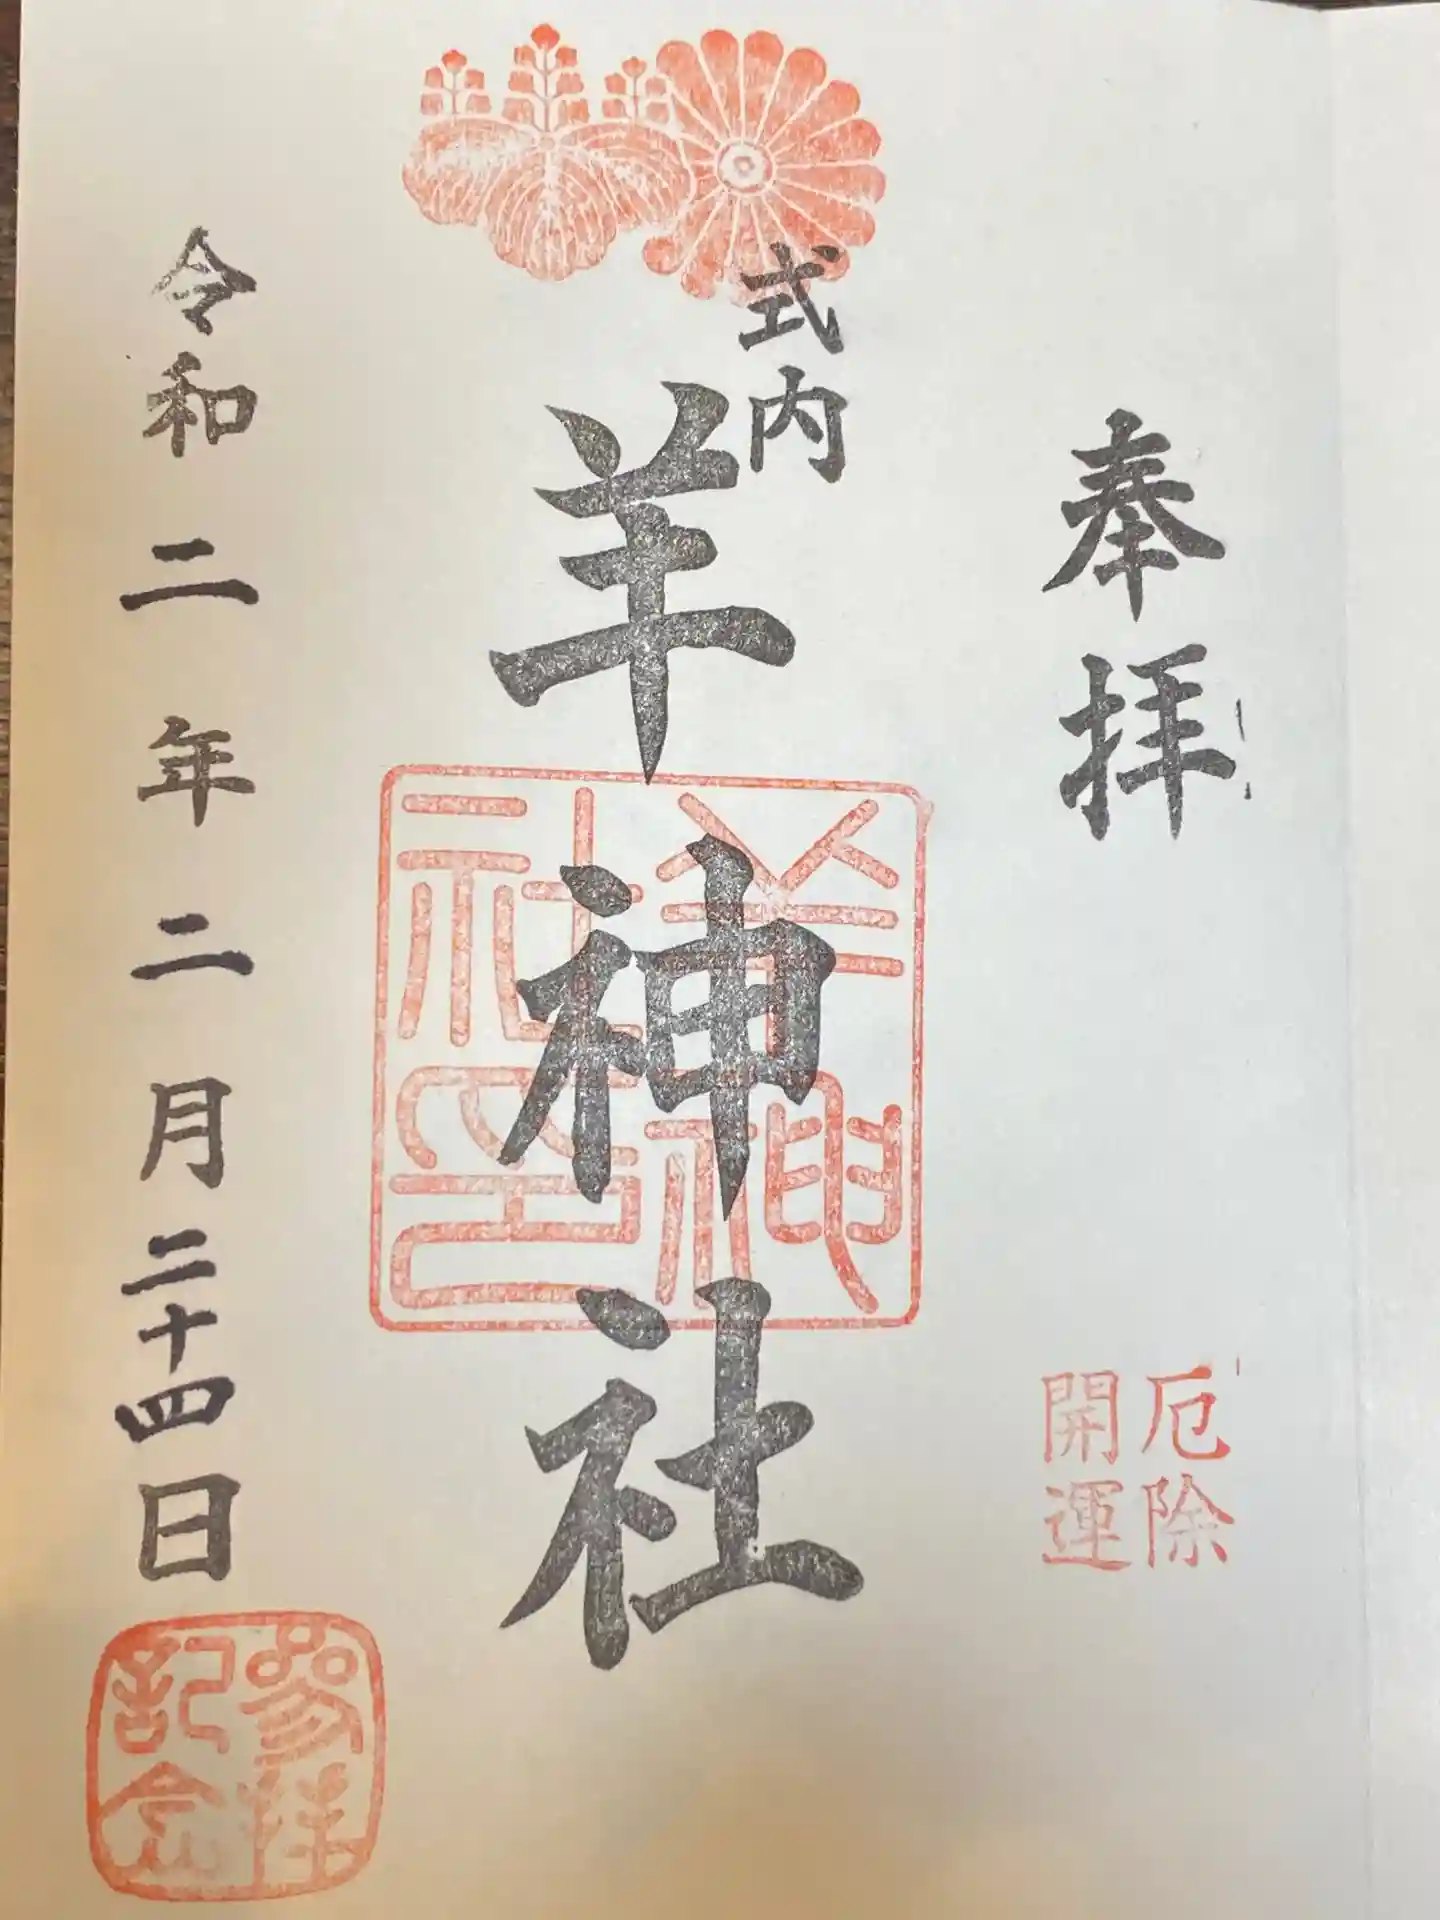 奉拝
厄除
開運
式内
羊神社
羊神社印
令和二年二月二十四日
参拝
記念